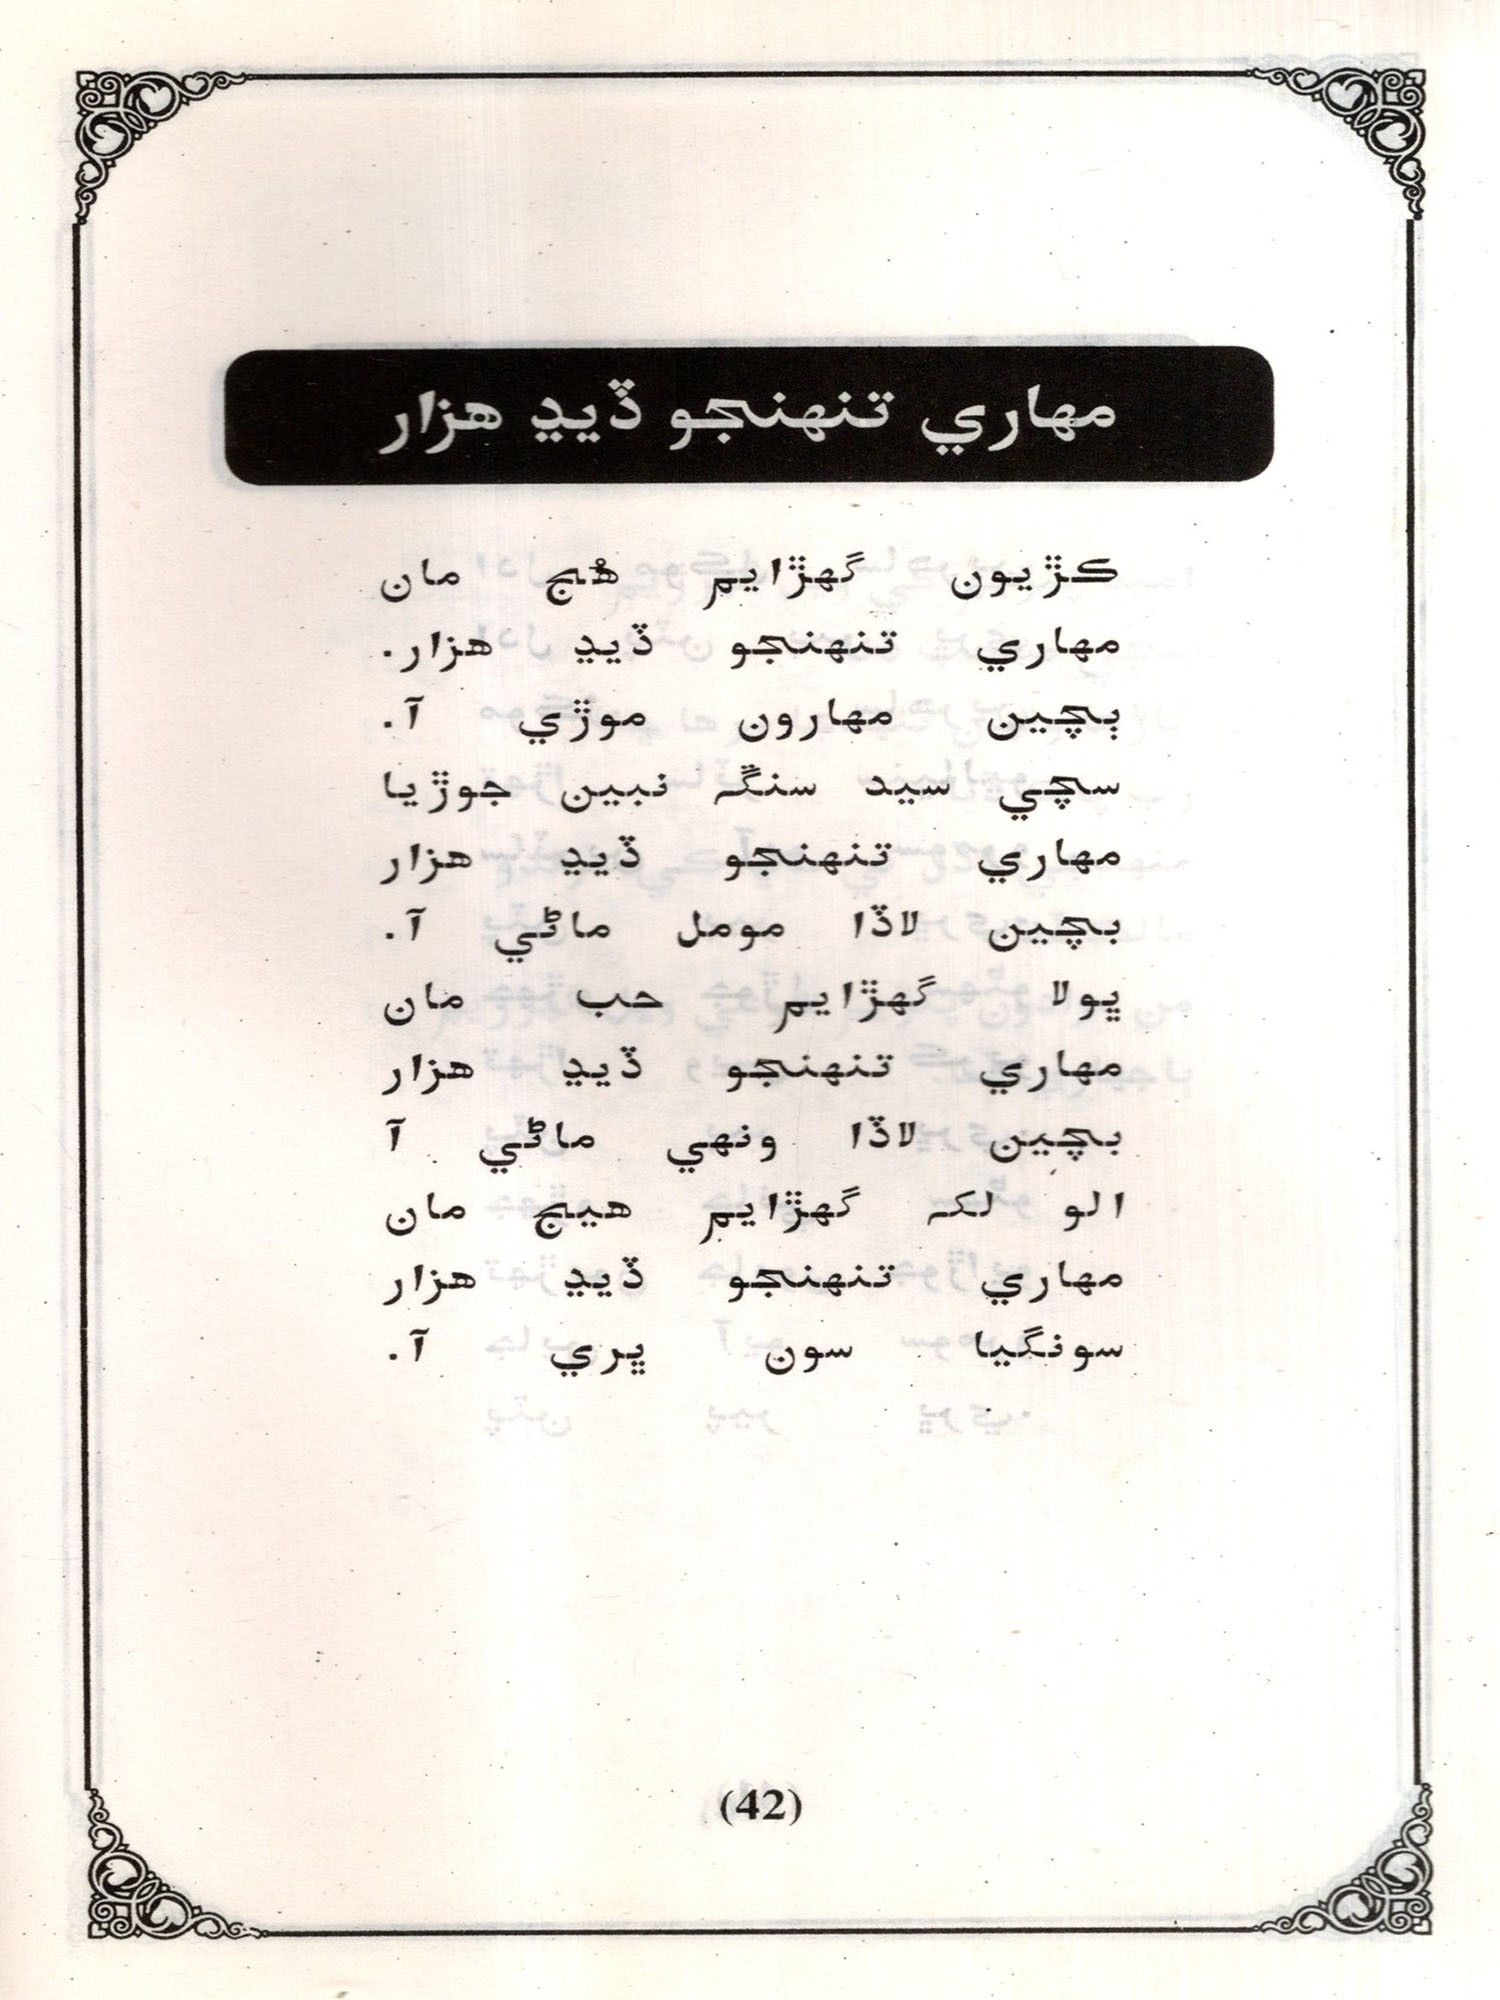 مهاري تنهنجو ڏيڍ هزار
ڪڙيون گهڙايم هُج مان
مهاري تنهنجو ڏيڍ هزار.
ٻچين مهارون موڙي آ.
سچي سيد سنگہ نبين جوڙيا
مهاري تنهنجو ڏيڍ هزار
بچين لاڏا مومل ماڻي آ.
ڀولا گهڙايم حب مان
مهاري تنهنجو ڏيڍ هزار
بچين لاڏا ونهي ماڻي آ
الو لکہ گهڙايم هيج مان
مهاري تنهنجو ڏيڍ هزار
سونگيا سون ڀري آ.
(42)